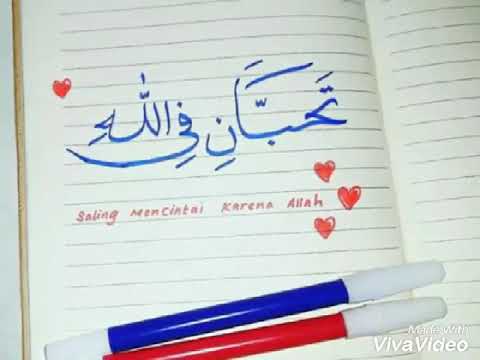 تَحَبَّانِ فِي اللّٰهِ
Saling Mencintai Karena Allah
Made With
VivaVideo